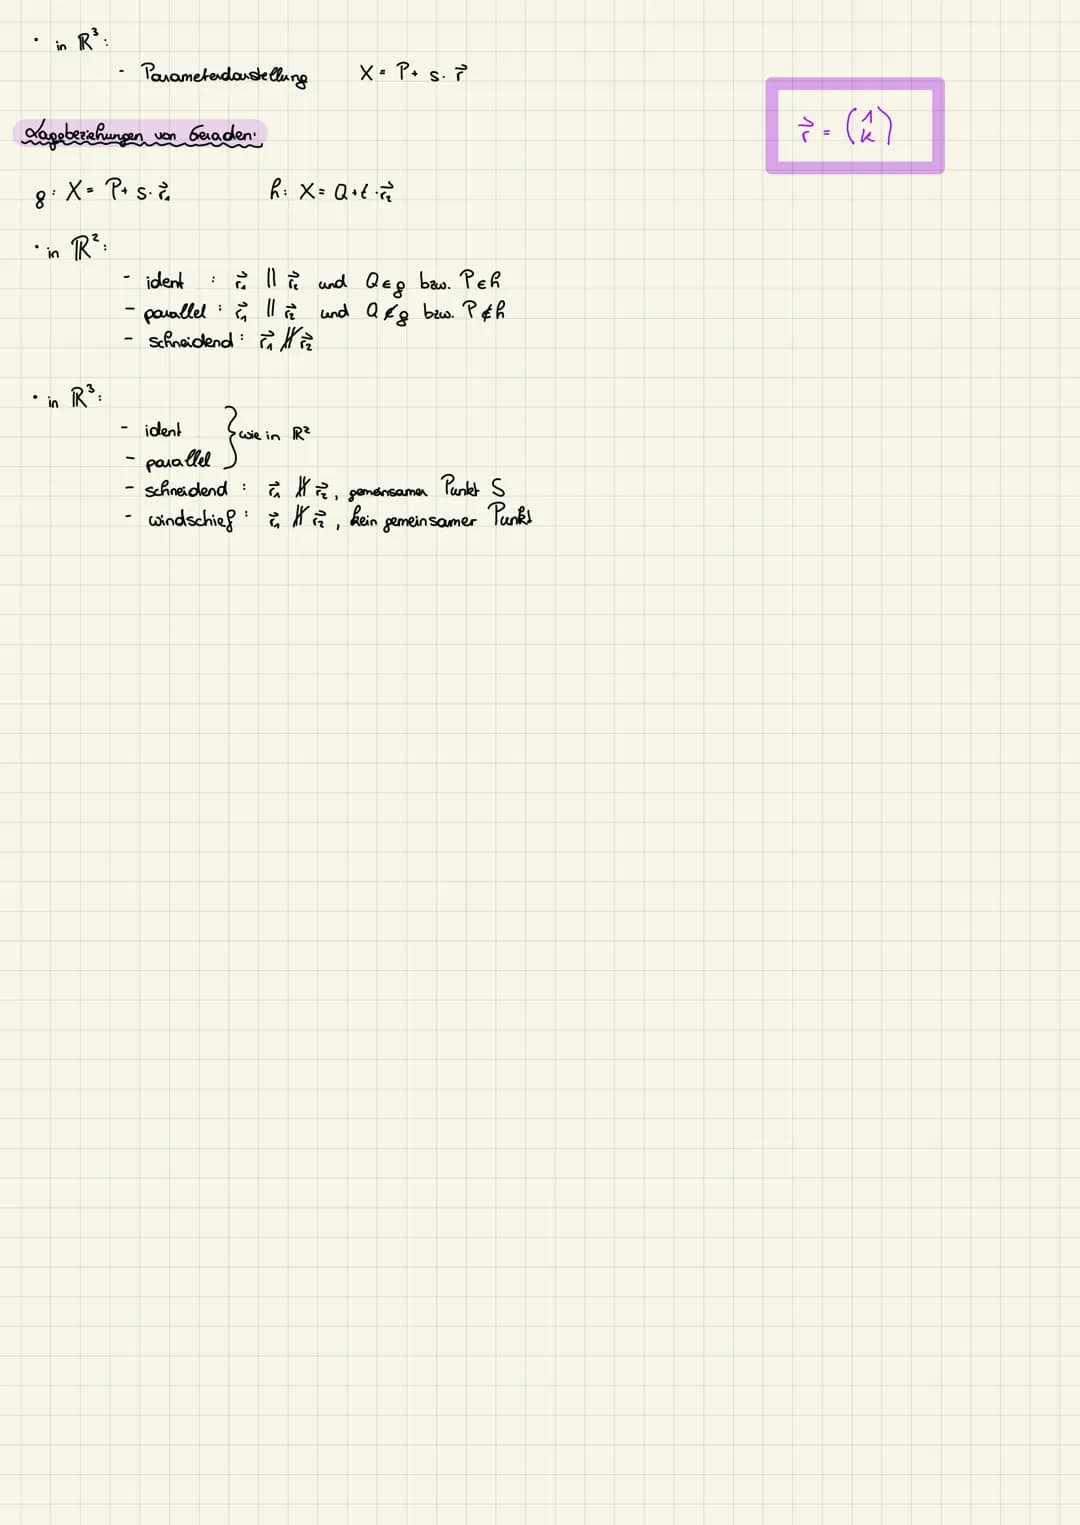 • in ℝ³:
- Parameterdarstellung X = P + s · r⃗
r⃗ = (1 k)
Lagebeziehungen von Geraden:
g: X = P + s · r⃗₁ h: X = Q + t · r⃗₂
• in ℝ²:
- ident : r⃗₁ || r⃗₂ und Q ∈ g bzw. P ∈ h
- parallel : r⃗₁ || r⃗₂ und Q ∉ g bzw. P ∉ h
- schneidend : r⃗₁ ∦ r⃗₂
• in ℝ³:
- ident } wie in ℝ²
- parallel
- schneidend : r⃗₁ ∦ r⃗₂, gemeinsamer Punkt S
- windschief : r⃗₁ ∦ r⃗₂, kein gemeinsamer Punkt